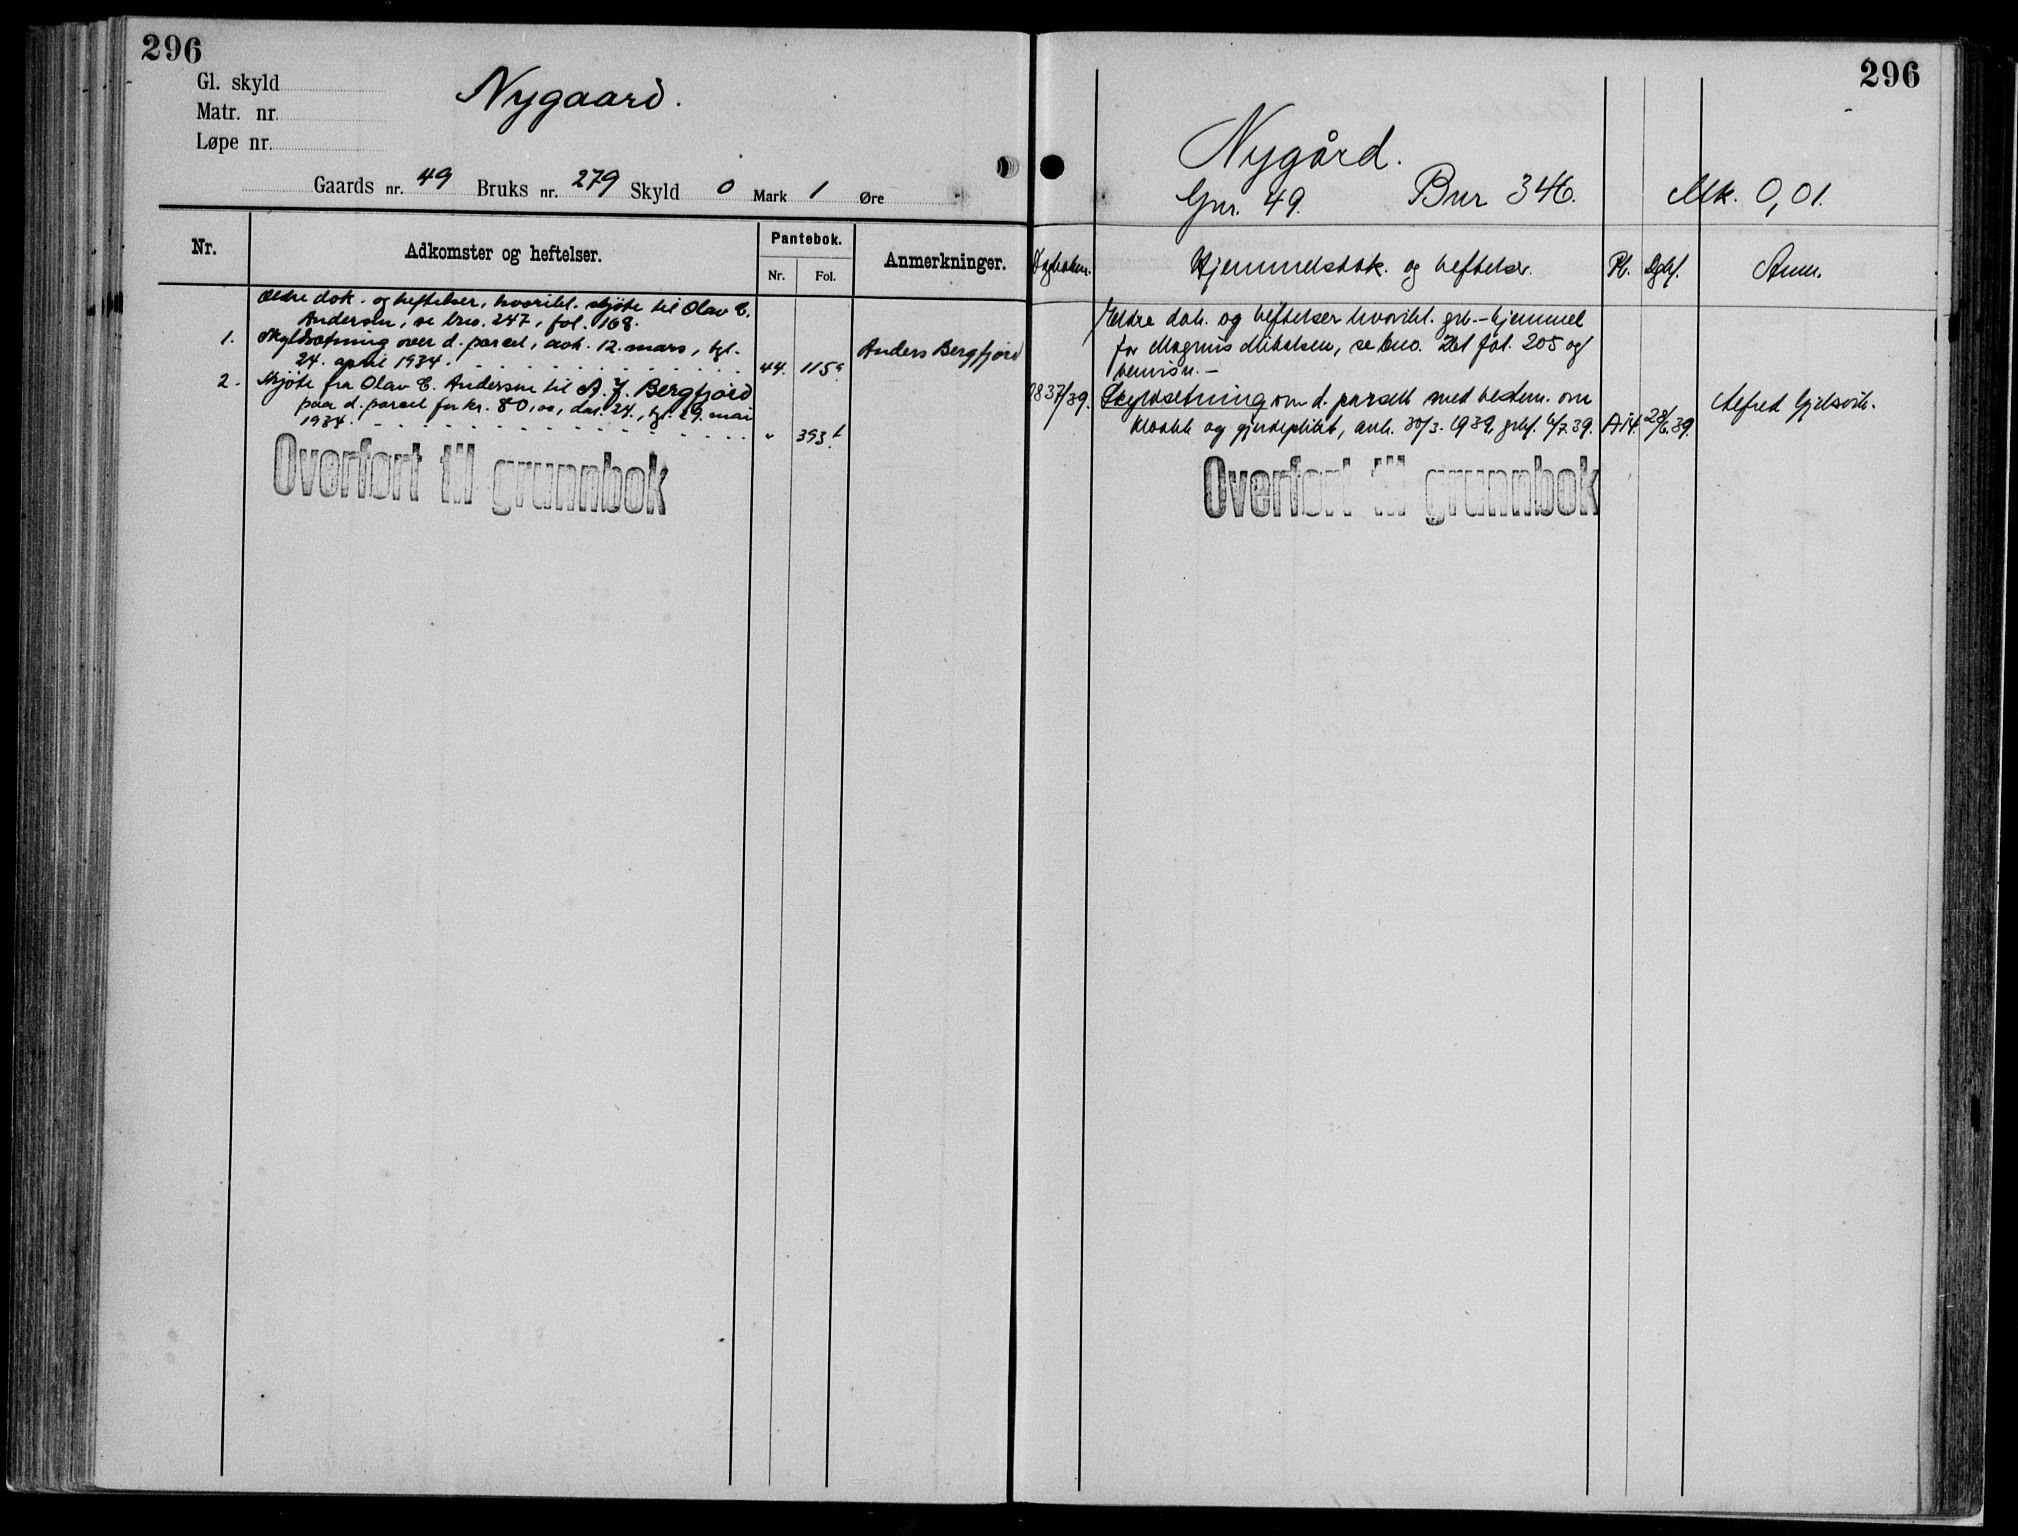 296
Gl. skyld
Matr. nr.
Løpe nr.
Nygaard.
Gaards nr. 49 Bruks nr. 279 Skyld 0 Mark 1 Øre
Nr. Adkomster og heftelser. Pantebok. Anmerkninger.
Nr. Fol.
Ældre dok. og heftelser, hvoribl. skjøte til Olav E.
Andersen, se bno. 247, fol. 168.
1. Skyldsætning over d. parcel, avh. 12. mars, tgl.
24. april 1934. 44. 115a Anders Bergfjord
2. Skjøte fra Olav E. Andersen til A. J. Bergfjord
paa d. parcel for kr. 80,00, dat. 24., tgl. 29. mai
1934. " 393b
Overført til grunnbok
296
Nygård.
Gnr. 49. Bnr 346. Mk. 0,01.
Dagboknr. Hjemmelsdok. og heftelser. Pb. Dgbf. Anm.
Eldre dok. og heftelser hvoribl. grb.-hjemmel
for Magnus Mikalsen, se bno. 261 fol. 205 og
henvisn. –
837/39. Skyldsetning om d. parsell med bestem. om
kloakk og gjerdeplikt, avh. 30/3. 1939. grbf. 6/7.39. A 14. 28/6.39. Alfred Gjelsvik.
Overført til grunnbok